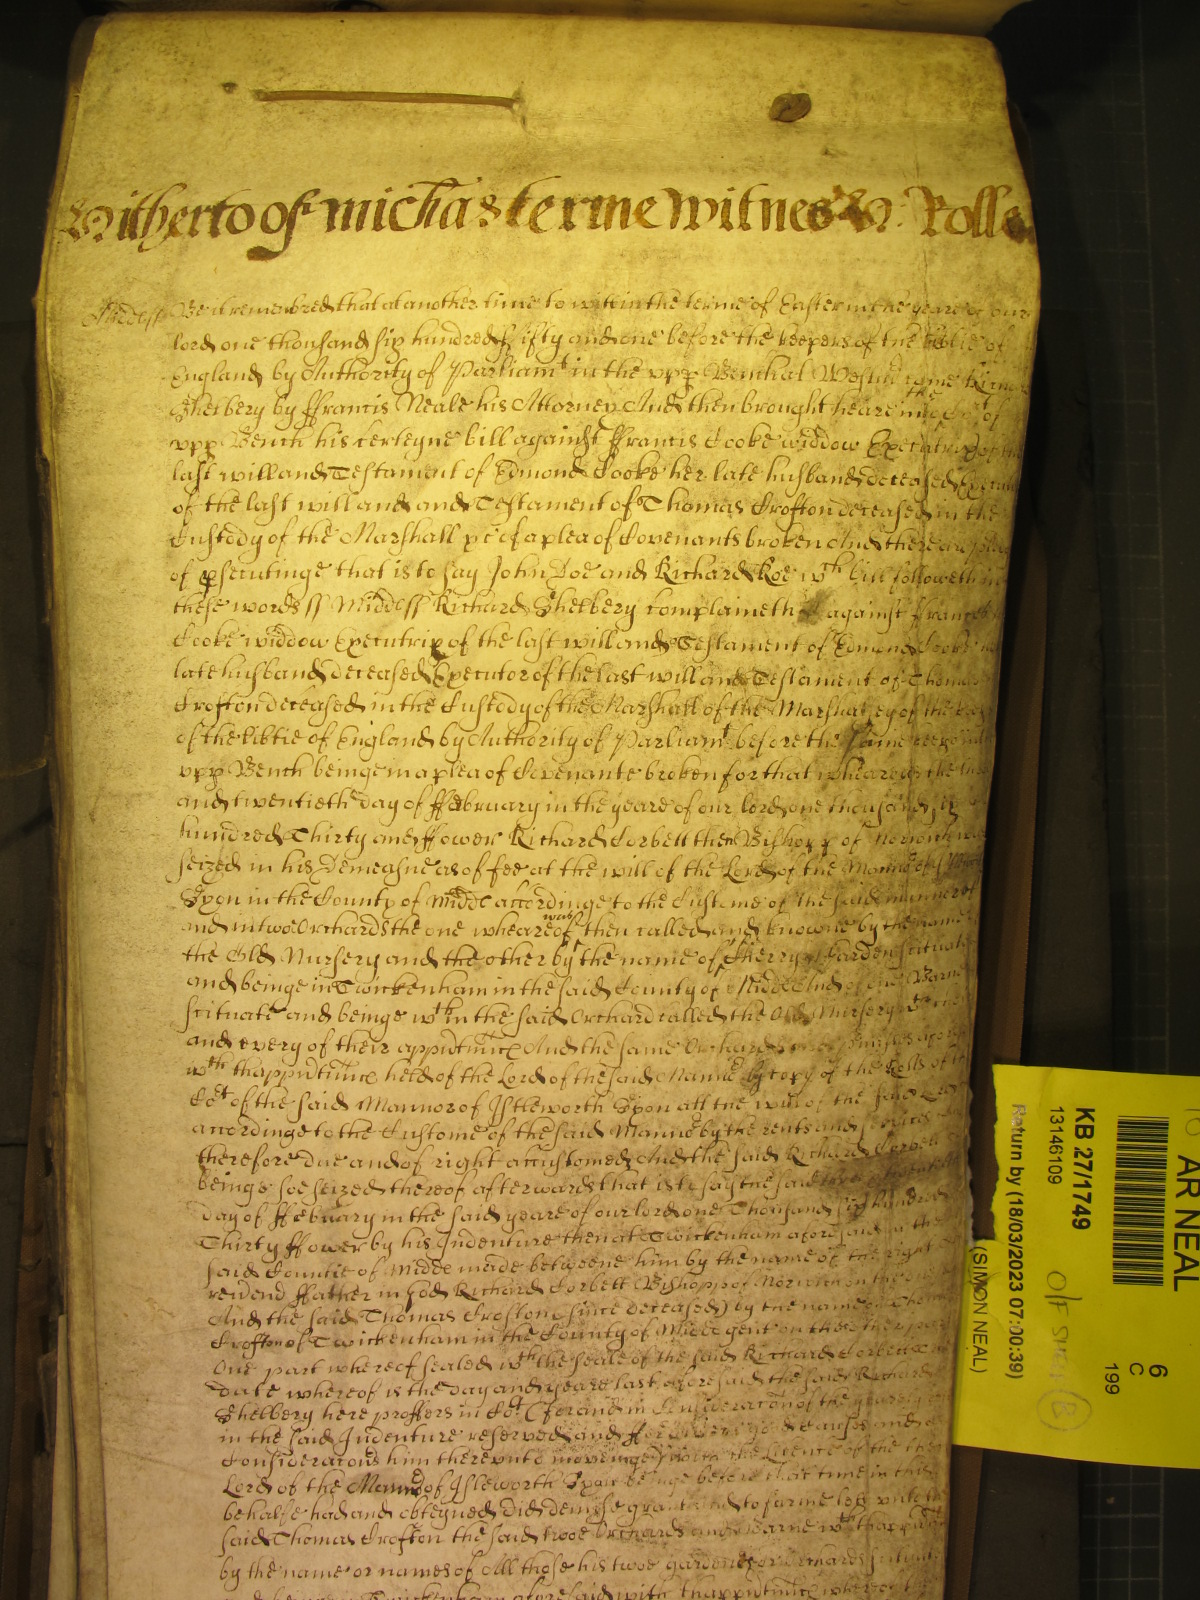 Hitherto of Michas terme Witnes H: Rolle
Middss Be it remembred that at another time to witt in the terme of Easter in the yeare of our
lord one thousand six hundred fifty and one before the keepers of the libtie of
England by Authority of Parliamt in the vpp Bench at Westm came Richard
Shelbery by ffrancis Neale his Attorney And then brought heare into the Cort of
vpp Bench his certeyne bill against ffrancis Cooke widdow Executrix of the
last will and Testament of Edmond Cooke her late husband deceased Executor
of the last will and and Testament of Thomas Crofton deceased in the
Custody of the Marshall &c of a plea of Covenants broken And there are pledges
of psecutinge that is to say John Doe and Richard Roe wch bill followeth in
these words ss Middss ss Richard Shelbery complaineth against ffrancis
Cooke widdow Executrix of the last will and Testament of Edmond Cooke her
late husband deceased Executor of the last will and Testament of Thomas
Crofton deceased in the Custody of the Marshall of the Marshalsey of the
of the libtie of England by Authority of Parliamt before the same keepers in the
vpp Bench beinge in a plea of Covenante broken for that wheareas the
and twentieth day of ffebruary in the yeare of our lord one thousand six
hundred Thirty and ffower Richard Corbett then Bishopp of Norwich was
seized in his Demeasne as of fee at the will of the Lord of the Mannor of Istleworth
Syon in the County of Midde accordinge to the Custome of the said mannor of
and in twoe Orchards the one wheareof was then called and knowne by the name of
the Old Nursery and the other by the name of Cherry Garden scituate
and beinge in Twickenham in the said County of Midde And of one Barne
scituate and beinge wthin the said Orchard called the Old Nursery
and every of their apptutnncs And the same Orchards and pmisses aforesaid
wth thapptutnncs held of the Lord of the said Mannor by copy of the Rolls of the
Cort of the said Mannor of Istleworth Syon att the will of the said Lord
accordinge to the Custome of the said Mannor by the rents and services
therefore due and of right accustomed And the said Richard Corbett
beinge soe seized thereof afterwards that is to say the said
day of ffebruary in the said yeare of our lord one Thousand six hundred
Thirty ffower by his Indenture then at Twickenham aforesaid in the
said Countie of Midde made betweene him by the name of the right
reverend ffather in god Richard Corbett Bishopp of Norwich on the one
And the said Thomas Crofton (since deceased) by the name of Thomas
Crofton of Twickenham in the County of Midde gent on the other part
One part whereof sealed wth the seale of the said Richard Corbett
date whereof is the day and yeare last aforesaid the said Richard
Shelbery here proffers in Cort (for and in Consideracon of the yearely
in the said Indenture reserved and for good causes and
Consideracons him therevnto moveinge) with the Licence of the then
Lord of the Mannor of Istleworth Syon beinge before that time in this
behalfe had and obteyned did demise grant and to farme lett vnto the
said Thomas Crofton the said twoe Orchards and Barne wth thapptutnncs
by the name or names of All those his twoe gardens or Orchards scituate
Twickenham aforesaid with thapptutnncs whereof
AR NEAL
6
C
199
KB 27/1749
13146109
O/F
B
Return by (18/03/2023 07:00:39)
(SIMON NEAL)